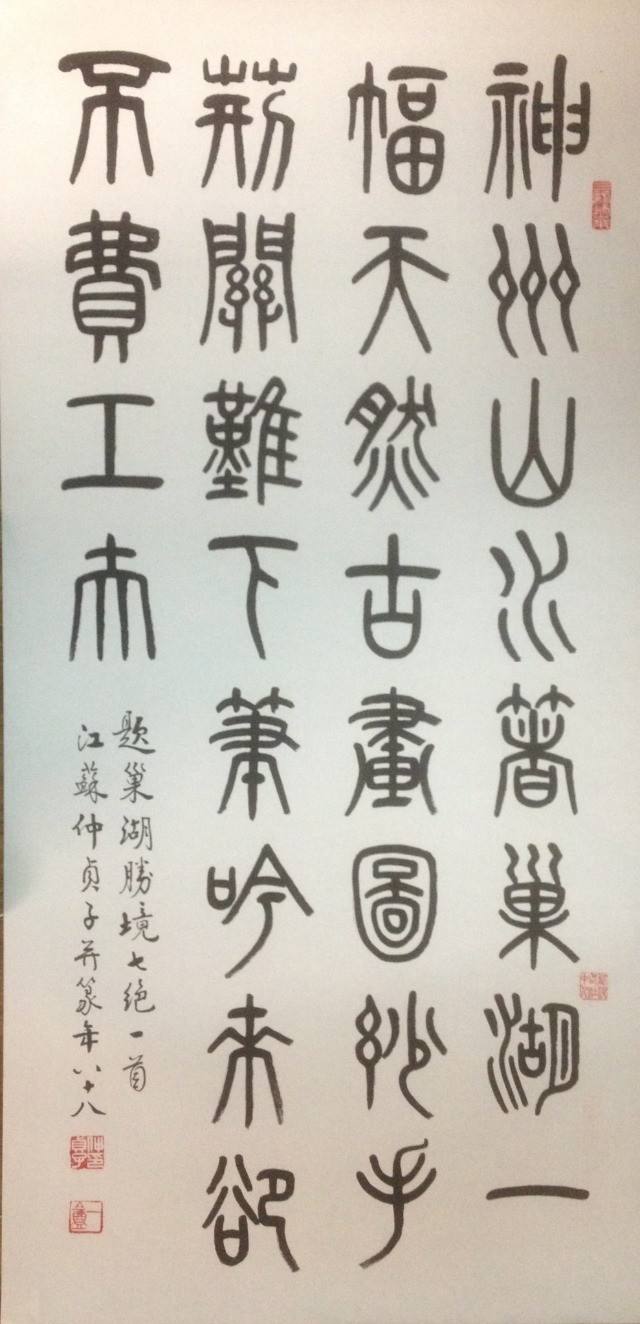 神州山水著巢湖一
幅天然古畫圖妙手
荊關難下筆吟來卻
不費工夫
題巢湖勝境七絕一首
江蘇仲貞子并篆年八十八